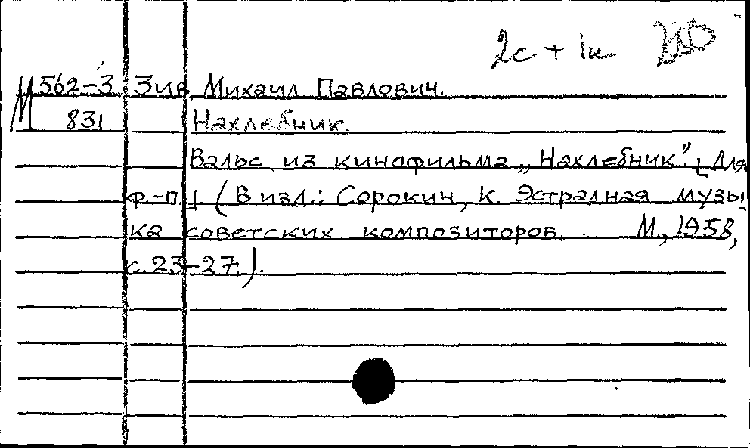 2с + 1н
М 562-3 Зив, Михаил Павлович.
831 Нахлебник.
Вальс из кинофильма „Нахлебник". [Для
ф.-п.] (В изд.: Сорокин, К. Эстрадная музы-
ка советских композиторов. М., 1958,
с. 23-27.).